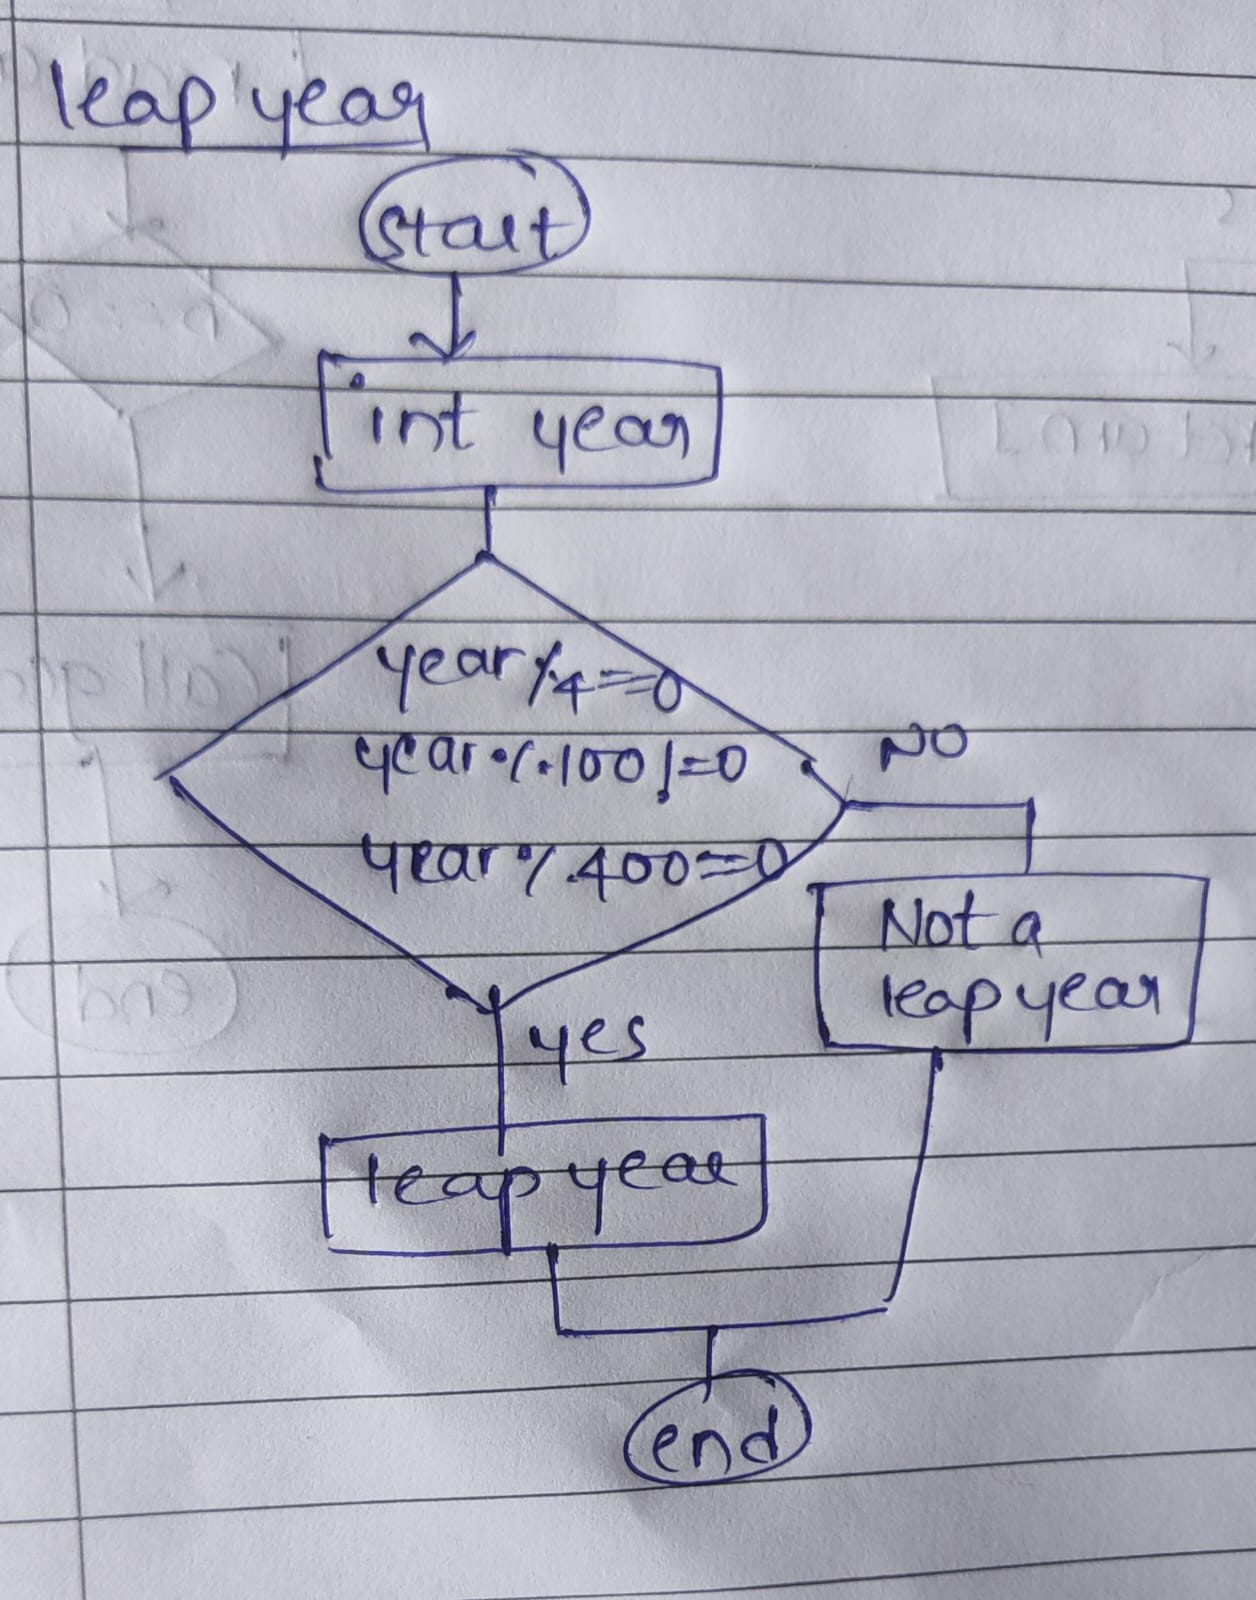 leap year
start
int year
year % 4==0
year % 100 !=0
NO
year % 400==0
Not a
leap year
yes
leap year
end